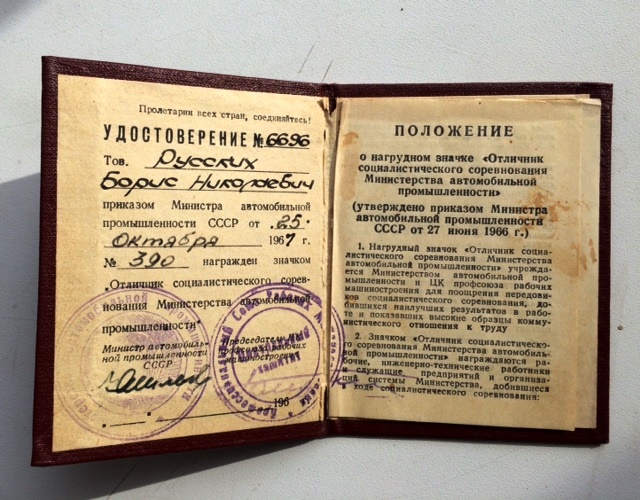 Пролетарии всех стран, соединяйтесь!
УДОСТОВЕРЕНИЕ № 6696
Тов. Русских
Борис Николаевич
приказом Министра автомобильной
промышленности СССР от „25“
Октября 1967 г.
№ 390 награжден значком
„Отличник социалистического сорев-
нования Министерства автомобильной
промышленности“
Министр автомобиль-
ной промышленности
СССР
Председатель
профсоюза рабочих
машиностроения
196
ПОЛОЖЕНИЕ
о нагрудном значке «Отличник
социалистического соревнования
Министерства автомобильной
промышленности»
(утверждено приказом Министра
автомобильной промышленности
СССР от 27 июня 1966 г.)
1. Нагрудный значок «Отличник социа-
листического соревнования Министерства
автомобильной промышленности» учрежда-
ется Министерством автомобильной про-
мышленности и ЦК профсоюза рабочих
машиностроения для поощрения передови-
ков социалистического соревнования, до-
бившихся наилучших результатов в рабо-
те и показавших высокие образцы комму-
нистического отношения к труду
2. Значком «Отличник социалистическо-
го соревнования Министерства автомобиль-
ной промышленности» награждаются ра-
бочие, инженерно-технические работники
и служащие предприятий и организа-
ций системы Министерства, добившиеся
в ходе социалистического соревнования: